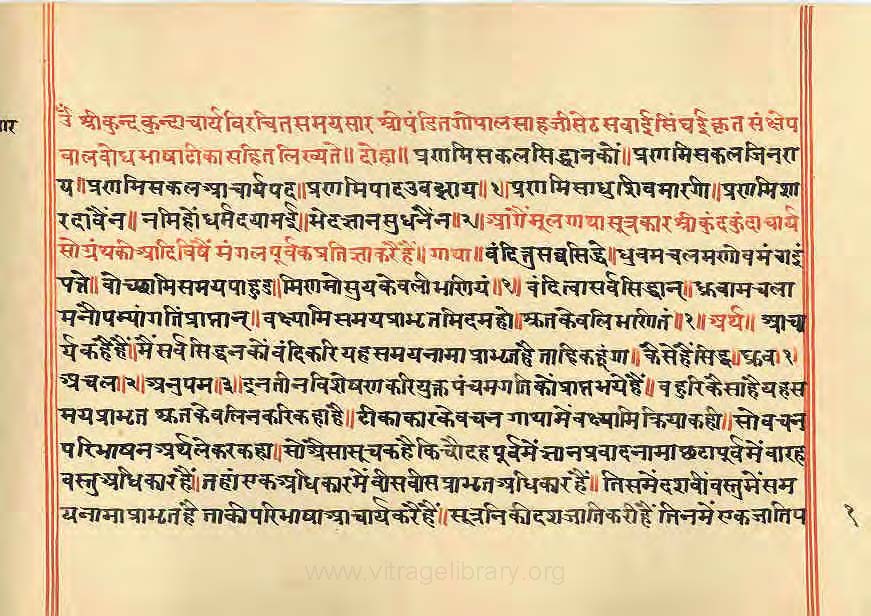 ॐ श्रीकुन्दकुन्दाचार्यविरचितसमयसार श्रीपंडितगोपालसाहजीसेठ सवाईसिंघई कृत संक्षेप
सार
बालबोधभाषाटीकासहितलिख्यते॥ दोहा॥ प्रणमिसकलसिद्धानकों॥ प्रणमिसकलजिनरा
य॥ प्रणमिसकलआचार्यपद॥ प्रणमिपादउवझाय॥१॥ प्रणमिसाधुशिवमारगी॥ प्रणमिशा
रदावैंन॥ नमिहोंधर्मदयामई॥ भेदज्ञानसुधनैंन॥२॥ आगैंमूलगाथासूत्रकार श्रीकुंदकुंदाचार्य
सोग्रंथकीआदिविषैं मंगलपूर्वकप्रतिज्ञाकरैहैं॥ गाथा॥ वंदित्तुसव्वसिद्धे॥ धुवमचलमणोवमंगइं
पत्ते॥ वोच्छामिसमयपाहुड॥ मिणमोसुयकेवलीभणियं॥१॥ वंदित्वासर्वसिद्धान्॥ ध्रुवामचला
मनौपम्यांगतिंप्राप्तान्॥ वक्ष्यामिसमयप्राभृतमिदमहो॥ श्रुतकेवलिभाणितं॥१॥ अर्थ॥ आचा
र्यकहैंहैं॥ मैंसर्वसिद्धनकोंवंदिकरियहसमयनामाप्राभृतहैताहिकहूंगा॥ कैसेहैंसिद्ध॥ ध्रुव॥१
अचल॥२॥ अनुपम॥३॥ इनतीनविशेषणकरियुक्तपंचमगतिकोंप्राप्तभयेहैं॥ बहुरिकैसाहैयहस
मयप्राभृत श्रुतकेवलिनकरिकहाहै॥ टीकाकारकेवचन गाथामेंवक्ष्यामिक्रियाकही॥ सोवचन
परिभाषनअर्थलेकरकह्या॥ सोऐसासूचकहैकिचौदहपूर्वमेंज्ञानप्रवादनामाछठापूर्वमेंवारह
वस्तुअधिकारहैं॥ तहांएकअधिकारमेंवीसवीसप्राभृतअधिकारहैं॥ तिसमेंदशवींवस्तुमेंसम
यनामाप्राभृतहै ताकीपरिभाषाआचार्यकरैहैं॥ सूत्रनिकीदशजातिकरीहैंतिनमेंएकजातिप
१
www.vitragelibrary.org